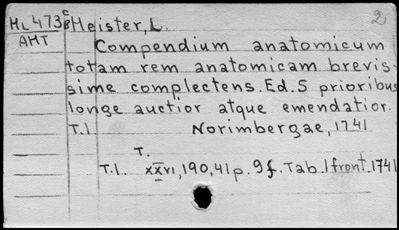 2
ML 473 C/B Meister, L.
AMT
Compendium anatomicum
totam rem anatomicam brevis-
sime complectens. Ed. S prioribus
longe auctior atque emendatior.
T.1. Norimbergae, 1741
T.
T.1. XXVI, 190, 41 p. 9 f. Tab. 1 front. 1741